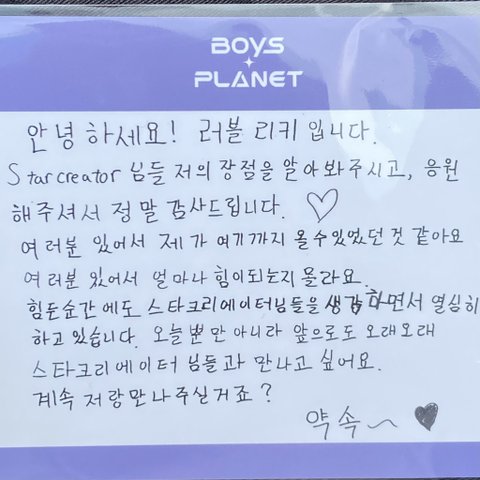 BOYS
PLANET
안녕하세요! 러블 리키 입니다.
Starcreator 님들 저의 장점을 알아봐주시고, 응원
해주셔서 정말 감사드립니다. ♡
여러분 있어서 제가 여기까지 올수있었던 것 같아요
여러분 있어서 얼마나 힘이되는지 몰라요.
힘든순간에도 스타크리에이터님들을 생각하면서 열심히
하고 있습니다. 오늘뿐만 아니라 앞으로도 오래오래
스타크리에이터 님들과 만나고 싶어요.
계속 저랑만나주실거죠?
약속~ ♥